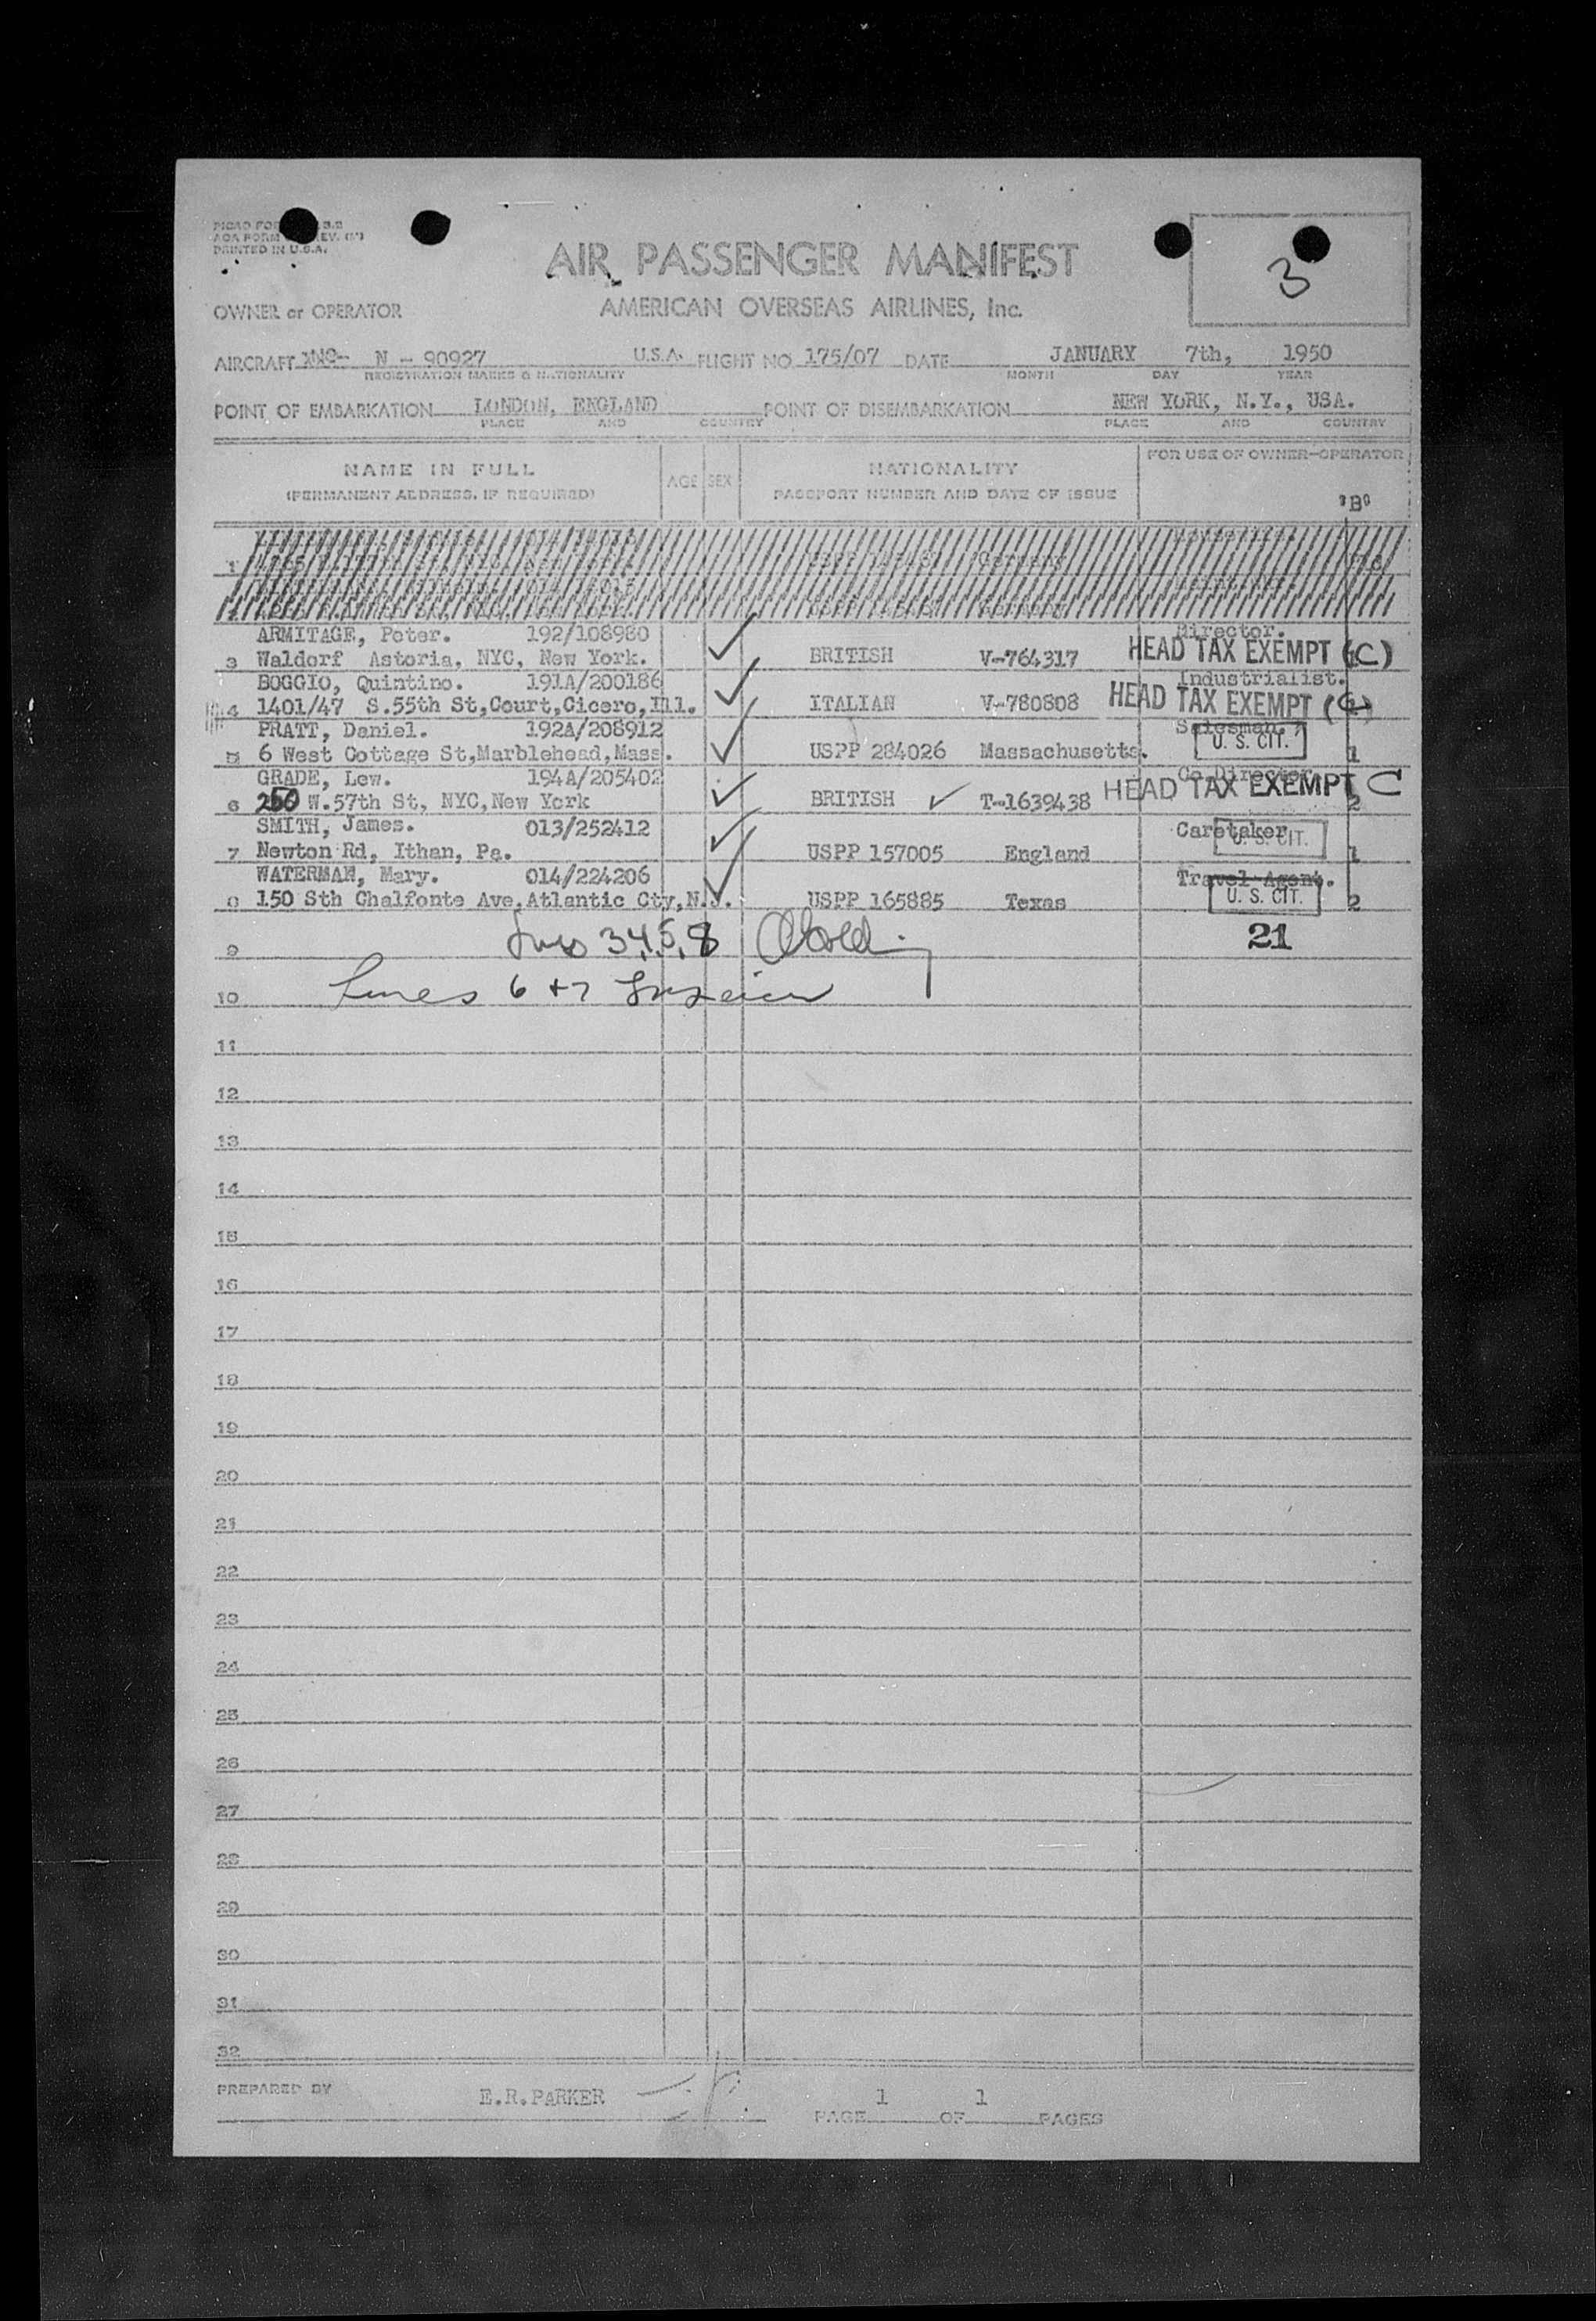 PRINTED IN U.S.A.
3
AIR PASSENGER MANIFEST
OWNER or OPERATOR AMERICAN OVERSEAS AIRLINES, Inc.
AIRCRAFT N - 90927 U.S.A. FLIGHT NO. 175/07 DATE JANUARY 7th, 1950
REGISTRATION MARKS & NATIONALITY MONTH DAY YEAR
POINT OF EMBARKATION LONDON, ENGLAND POINT OF DISEMBARKATION NEW YORK, N.Y., USA.
PLACE AND COUNTRY PLACE AND COUNTRY
NAME IN FULL AGE SEX NATIONALITY FOR USE OF OWNER-OPERATOR
(PERMANENT ADDRESS, IF REQUIRED) PASSPORT NUMBER AND DATE OF ISSUE
"B"
1 Germany
2
ARMITAGE, Peter. 192/108980 Director.
3 Waldorf Astoria, NYC, New York. BRITISH V-764317 HEAD TAX EXEMPT (C)
BOGGIO, Quintino. 191A/200186 Industrialist.
4 1401/47 S.55th St,Court,Cicero,Ill. ITALIAN V-780808 HEAD TAX EXEMPT (C)
PRATT, Daniel. 192A/208912 Salesman.
5 6 West Cottage St,Marblehead,Mass. USPP 284026 Massachusetts. U. S. CIT. 1
GRADE, Lew. 194A/205402 Co Director.
6 250 W.57th St, NYC,New York BRITISH T-1639438 HEAD TAX EXEMPT C 2
SMITH, James. 013/252412 Caretaker
7 Newton Rd, Ithan, Pa. USPP 157005 England U. S. CIT. 1
WATERMAN, Mary. 014/224206 Travel Agent.
8 150 Sth Chalfonte Ave,Atlantic Cty,N.J. USPP 165885 Texas U. S. CIT. 2
9 Lines 3,4,5,8 21
10 Lines 6 + 7
11
12
13
14
15
16
17
18
19
20
21
22
23
24
25
26
27
28
29
30
31
32
PREPARED BY E.R.PARKER PAGE 1 OF 1 PAGES